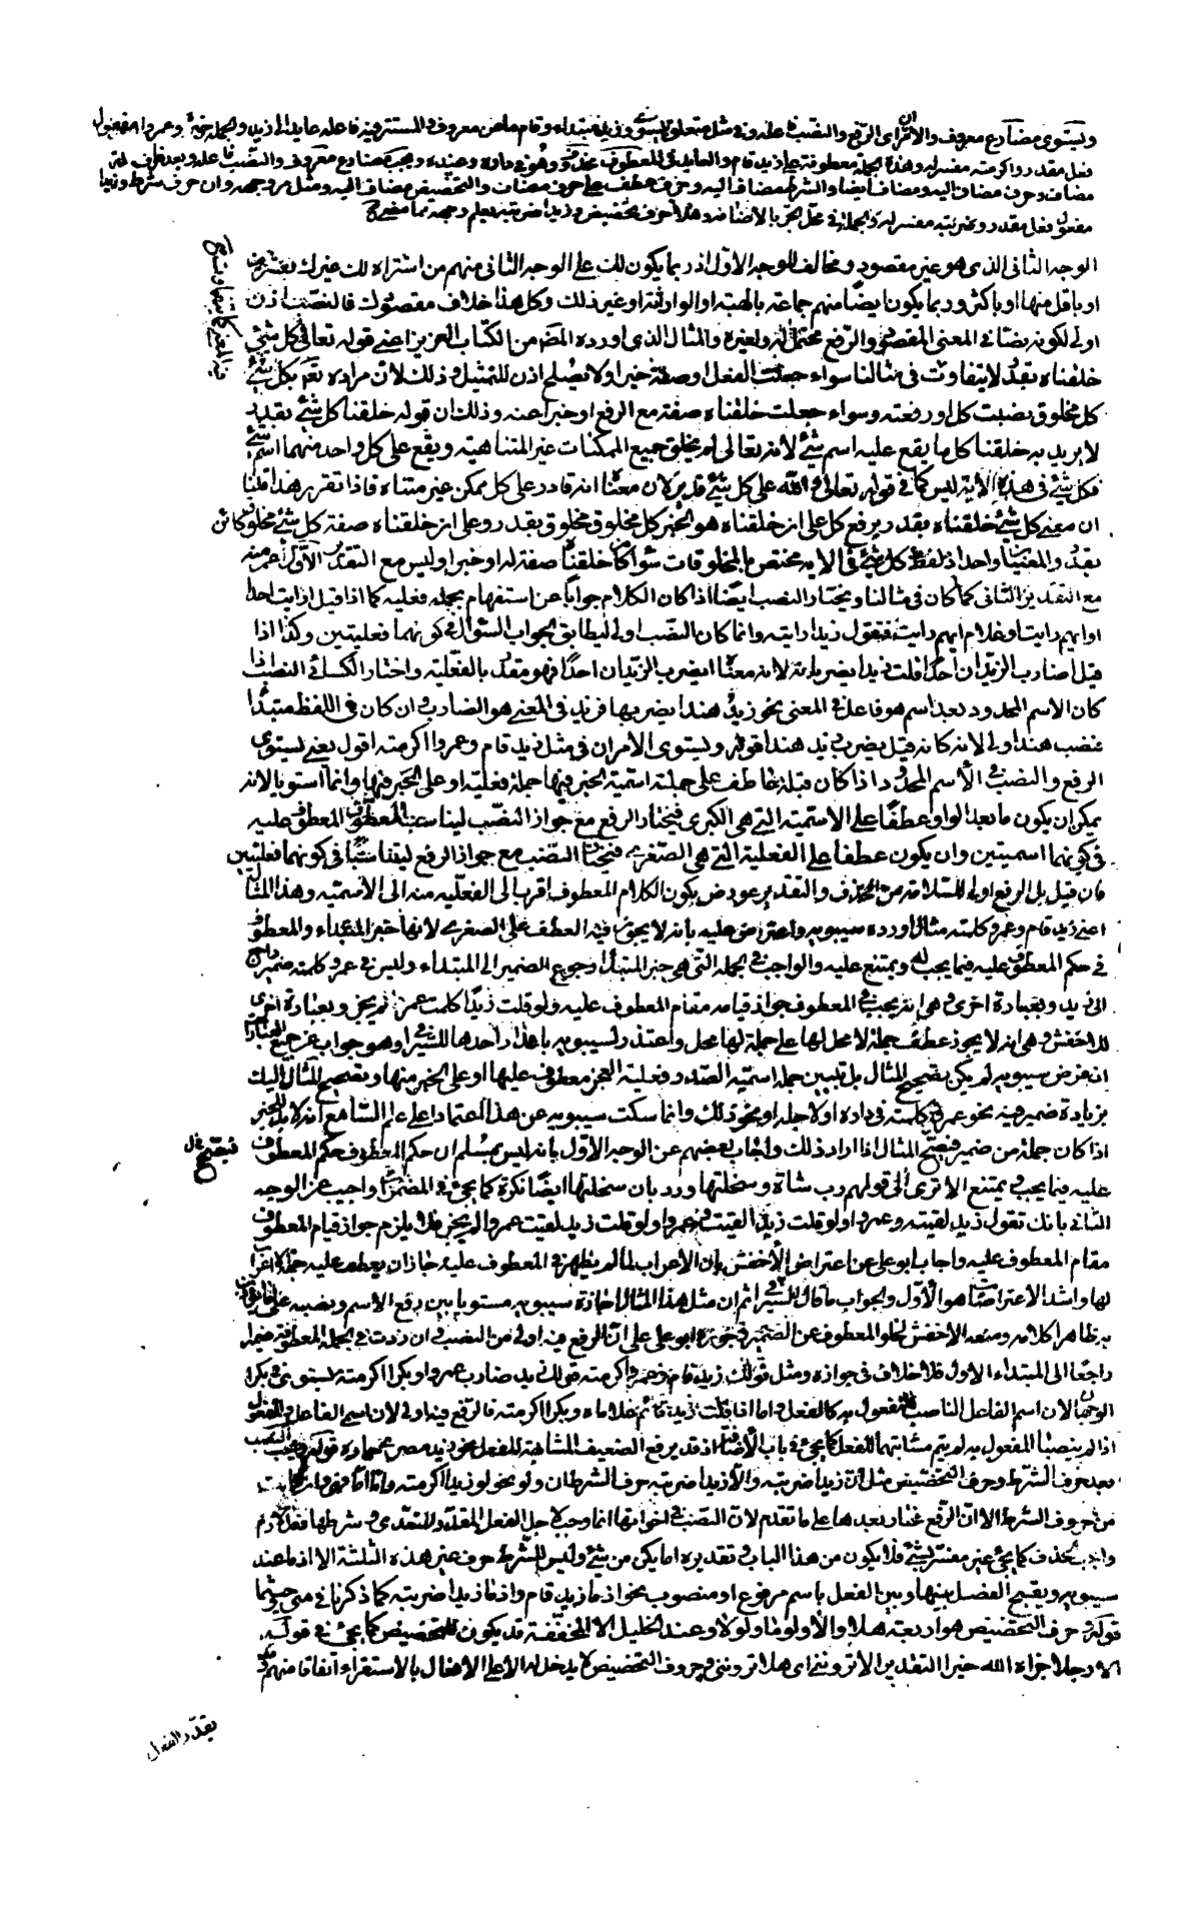 ويستوي مضارع معروف والامران اي الرفع والنصب فاعله وفي مثل متعلق بيستوي وزيد مبتداء وقام ماض معروف والمستتر فيه فاعله عايد الى زيد والجملة خبره وعمروا مفعول
فعل مقدر واكرمته مفسر له وهذه الجملة معطوفة على زيد قام والعايد في المعطوف محذوف وهو في داره وعنده ويجب مضارع معروف والنصب فاعله وبعد ظرف له
مضاف وحرف مضاف اليه ومضاف ايضا والشرط مضاف اليه وحرف عطف على حرف مضاف والتحضيض مضاف اليه ومثل مر وجهه وان حرف شرط وزيدا
مفعول فعل مقدر وضربته مفسر له والجملة في محل الجر بالاضافة وهلا حرف تحضيض وزيدا ضربته يعلم وجهه مما مضى
الوجه الثاني الذي هو غير مقصود ومخالف للوجه الاول اذ ربما يكون لك على الوجه الثاني منهم من اشتراه لك غيرك بعشرين
او باقل منها او باكثر وربما يكون ايضا منهم جماعة بالهبة او الوارثة او غير ذلك وكل هذا خلاف مقصودك فالنصب اذن
اولى لكونه نصا في المعنى المقصود والرفع محتمل له ولغيره والمثال الذي اورده المص من الكتاب العزيز اعني قوله تعالى كل شئ
خلقناه بقدر لا يتفاوت في مثالنا سواء جعلت الفعل او صفة خبرا ولا يصلح اذن للتمثيل وذلك لان مراده تع بكل شئ
كل مخلوق نصبت كل او رفعته وسواء جعلت خلقناه صفة مع الرفع او خبرا عنه وذلك ان قوله خلقنا كل شئ بقدر
لا يريد به خلقنا كل ما يقع عليه اسم شئ لانه تعالى لم يخلق جميع الممكنات غير المتناهية ويقع على كل واحد منهما اسم شئ
فكل شئ في هذه الاية ليس كما في قوله تعالى والله على كل شئ قدير لان معناه انه قادر على كل ممكن غير متناه فاذا تقرر هذا قلنا
ان معنى كل شئ خلقناه بقدر برفع كل على ان خلقناه هو الخبر كل مخلوق مخلوق بقدر وعلى ان خلقناه صفة كل شئ مخلوق كائن
بقدر والمعنيان واحد اذ لفظ كل شئ في الاية مختص بالمخلوقات سواء كان خلقناه صفة له او خبرا وليس مع التقدير الاول اعم منه
مع التقدير الثاني كما كان في مثالنا ويختار النصب ايضا اذا كان الكلام جوابا عن استفهام بجملة فعلية كما اذا قيل ارايت احدا
او ايهم رايت او غلام ايهم رايت فتقول زيدا رايته وانما كان النصب اولى ليطابق الجواب السؤال في كونهما فعليتين وكذا اذا
قيل اضارب الزيدان احدا قلت زيدا يضربانه لانه معناه ايضرب الزيدان احدا فهو مقدر بالفعلية واختار الكسائي النصب اذا
كان الاسم المحدود بعد اسم هو فاعل في المعنى نحو زيد هندا يضربها فزيد في المعنى هو الضارب وان كان في اللفظ مبتدا
فنصب هندا اولى لانه كانه قيل يضرب زيد هندا قوله ويستوى الامران في مثل زيد قام وعمروا اكرمته اقول يعني يستوي
الرفع والنصب في الاسم المحدود اذا كان قبله عاطف على جملة اسمية الخبر فيها جملة فعلية او على الخبر فيها وانما استويا لانه
يمكن ان يكون ما بعد الواو عطفا على الاسمية التي هي الكبرى فيختار الرفع مع جواز النصب ليناسب المعطوف المعطوف عليه
في كونهما اسميتين وان يكون عطفا على الفعلية التي هي الصغرى فيختار النصب مع جواز الرفع ليتناسبا في كونهما فعليتين
فان قيل بل الرفع اولى للسلامة من الحذف والتقدير عورض بكون الكلام المعطوف اقرب الى الفعلية منه الى الاسمية وهذا المثال
اعني زيد قام وعمرو كلمته مثال اورده سيبويه واعترض عليه بانه لا يجوز فيه العطف على الصغرى لانها خبر المبتداء والمعطوف
في حكم المعطوف عليه فيما يجب له ويمتنع عليه والواجب في الجملة التي هو خبر المبتدا رجوع الضمير الى المبتداء وليس في عمرو كلمته ضمير راجع
الى زيد وبعبارة اخرى وهي انه يجب في المعطوف جواز قيامه مقام المعطوف عليه ولو قلت زيدا كلمت عمرا لم يجز وبعبارة اخرى
للاخفش وهي انه لا يجوز عطف جملة لا محل لها على جملة لها محل واعتذر لسيبويه باعذار احدها للسيرافي وهو جواب عن جميع العبارات
ان غرض سيبويه لم يكن تصحيح المثال بل تبيين جملة اسمية الصدر وفعلية العجز معطوف عليها او على الخبر منها وتصحيح المثال اليك
بزيادة ضمير فيه نحو عمرو كلمته في داره او لاجله او نحو ذلك وانما سكت سيبويه عن هذا اعتمادا على علم السامع انه لا بد للخبر
اذا كان جملة من ضمير فيصحح المثال اذا اراد ذلك واجاب بعضهم عن الوجه الاول بانه ليس بمسلم ان حكم المعطوف حكم المعطوف
عليه فيما يجب ويمتنع الا ترى الى قولهم رب شاة وسخلتها ورد بان سخلتها ايضا نكرة كما يجئ في المضمرات واجيب عن الوجه
الثاني بانك تقول زيد لقيته وعمروا ولو قلت زيد لقيت وعمروا ولو قلت زيد لقيت عمروا لم يجز فلا يلزم جواز قيام المعطوف
مقام المعطوف عليه واجاب ابو علي عن اعتراض الاخفش بان الاعراب لما لم يظهر في المعطوف عليه جاز ان يعطف عليه جملة لا اعراب
لها واشد الاعتراضات هو الاول والجواب ما قال السيرافي ثم ان مثل هذا المثال اجازه سيبويه مستويا بين رفع الاسم ونصبه على ما
به ظاهر كلامه ومنعه الاخفش لخلو المعطوف عن الضمير وجوزه ابو علي على ان الرفع فيه اولى من النصب فان زدت في الجملة المعطوفة ضميرا
راجعا الى المبتداء الاول فلا خلاف في جوازه ومثل قولك زيد قام وعمروا اكرمته قولك زيد ضارب عمروا وبكرا اكرمته يستوي في بكرا
الوجهان لان اسم الفاعل الناصب للمفعول به كالفعل واما اذا قلت زيد قائم غلامه وبكرا اكرمته فالرفع فيه اولى لان اسم الفاعل والمفعول
اذا لم ينصبا المفعول به لم يتم مشابهتهما للفعل كما يجئ في باب الاضافة اذ قد يرفع الضعيف المشابهة للفعل نحو زيد مصري حماره قوله ويجب النصب
بعد حرف الشرط وحرف التحضيض مثل ان زيدا ضربته والا زيدا ضربته حرف الشرط ان ولو نحو لو زيدا اكرمته واما اما فهو وان كانت
من حروف الشرط الا ان الرفع مختار بعدها على ما تقدم لان النصب في اخواتها انما وجب لاجل الفعل المقدر المتعدي وشرطها فعل لازم
واجب الحذف كما يجئ غير مفسر بشئ فلا يكون من هذا الباب وتقديره اما يكن من شئ وليس للشرط حرف غير هذه الثلثة الا اذما عند
سيبويه ويقبح الفصل بينها وبين الفعل باسم مرفوع او منصوب نحو اذما زيد قام واذما زيدا ضربته كما ذكرنا في متى وحيثما
قوله وحرف التحضيض هو اربعة هلا والا ولوما ولولا وعند الخليل الا المخففة قد يكون للتحضيض كما يجئ في قوله
الا رجلا جزاه الله خيرا التقدير الا ترونني اي هلا ترونني وحروف التحضيض لا يدخل له الا على الافعال بالاستقراء واتفاقا منهم
فيصحح